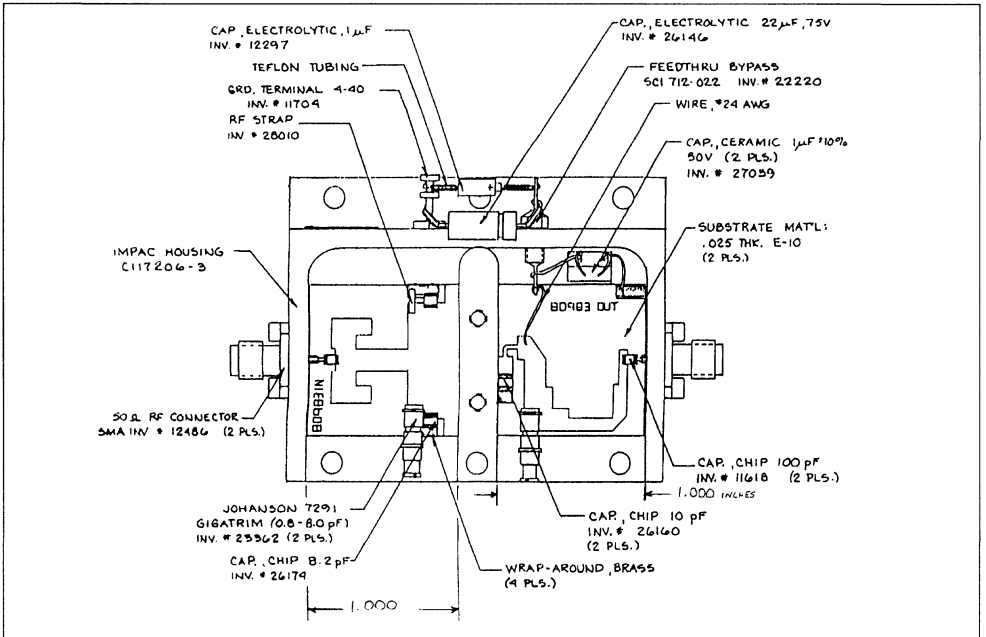 CAP., ELECTROLYTIC, 1µF
INV. # 12297
TEFLON TUBING
GRD. TERMINAL 4-40
INV. # 11704
RF STRAP
INV # 28010
IMPAC HOUSING
C117206-3
50 Ω RF CONNECTOR
SMA INV # 12486 (2 PLS.)
JOHANSON 7291
GIGATRIM (0.8-8.0 pF)
INV. # 23362 (2 PLS.)
CAP., CHIP 8.2 pF
INV. # 26174
1.000
CAP., ELECTROLYTIC 22µF, 75V
INV. # 26146
FEEDTHRU BYPASS
SCI 712-022 INV. # 22220
WIRE, #24 AWG
CAP., CERAMIC 1µF ±10%
50V (2 PLS.)
INV. # 27059
SUBSTRATE MAT'L:
.025 THK. E-10
(2 PLS.)
CAP., CHIP 100 pF
INV. # 11618 (2 PLS.)
1.000 INCHES
CAP., CHIP 10 pF
INV. # 26160
(2 PLS.)
WRAP-AROUND, BRASS
(4 PLS.)
+